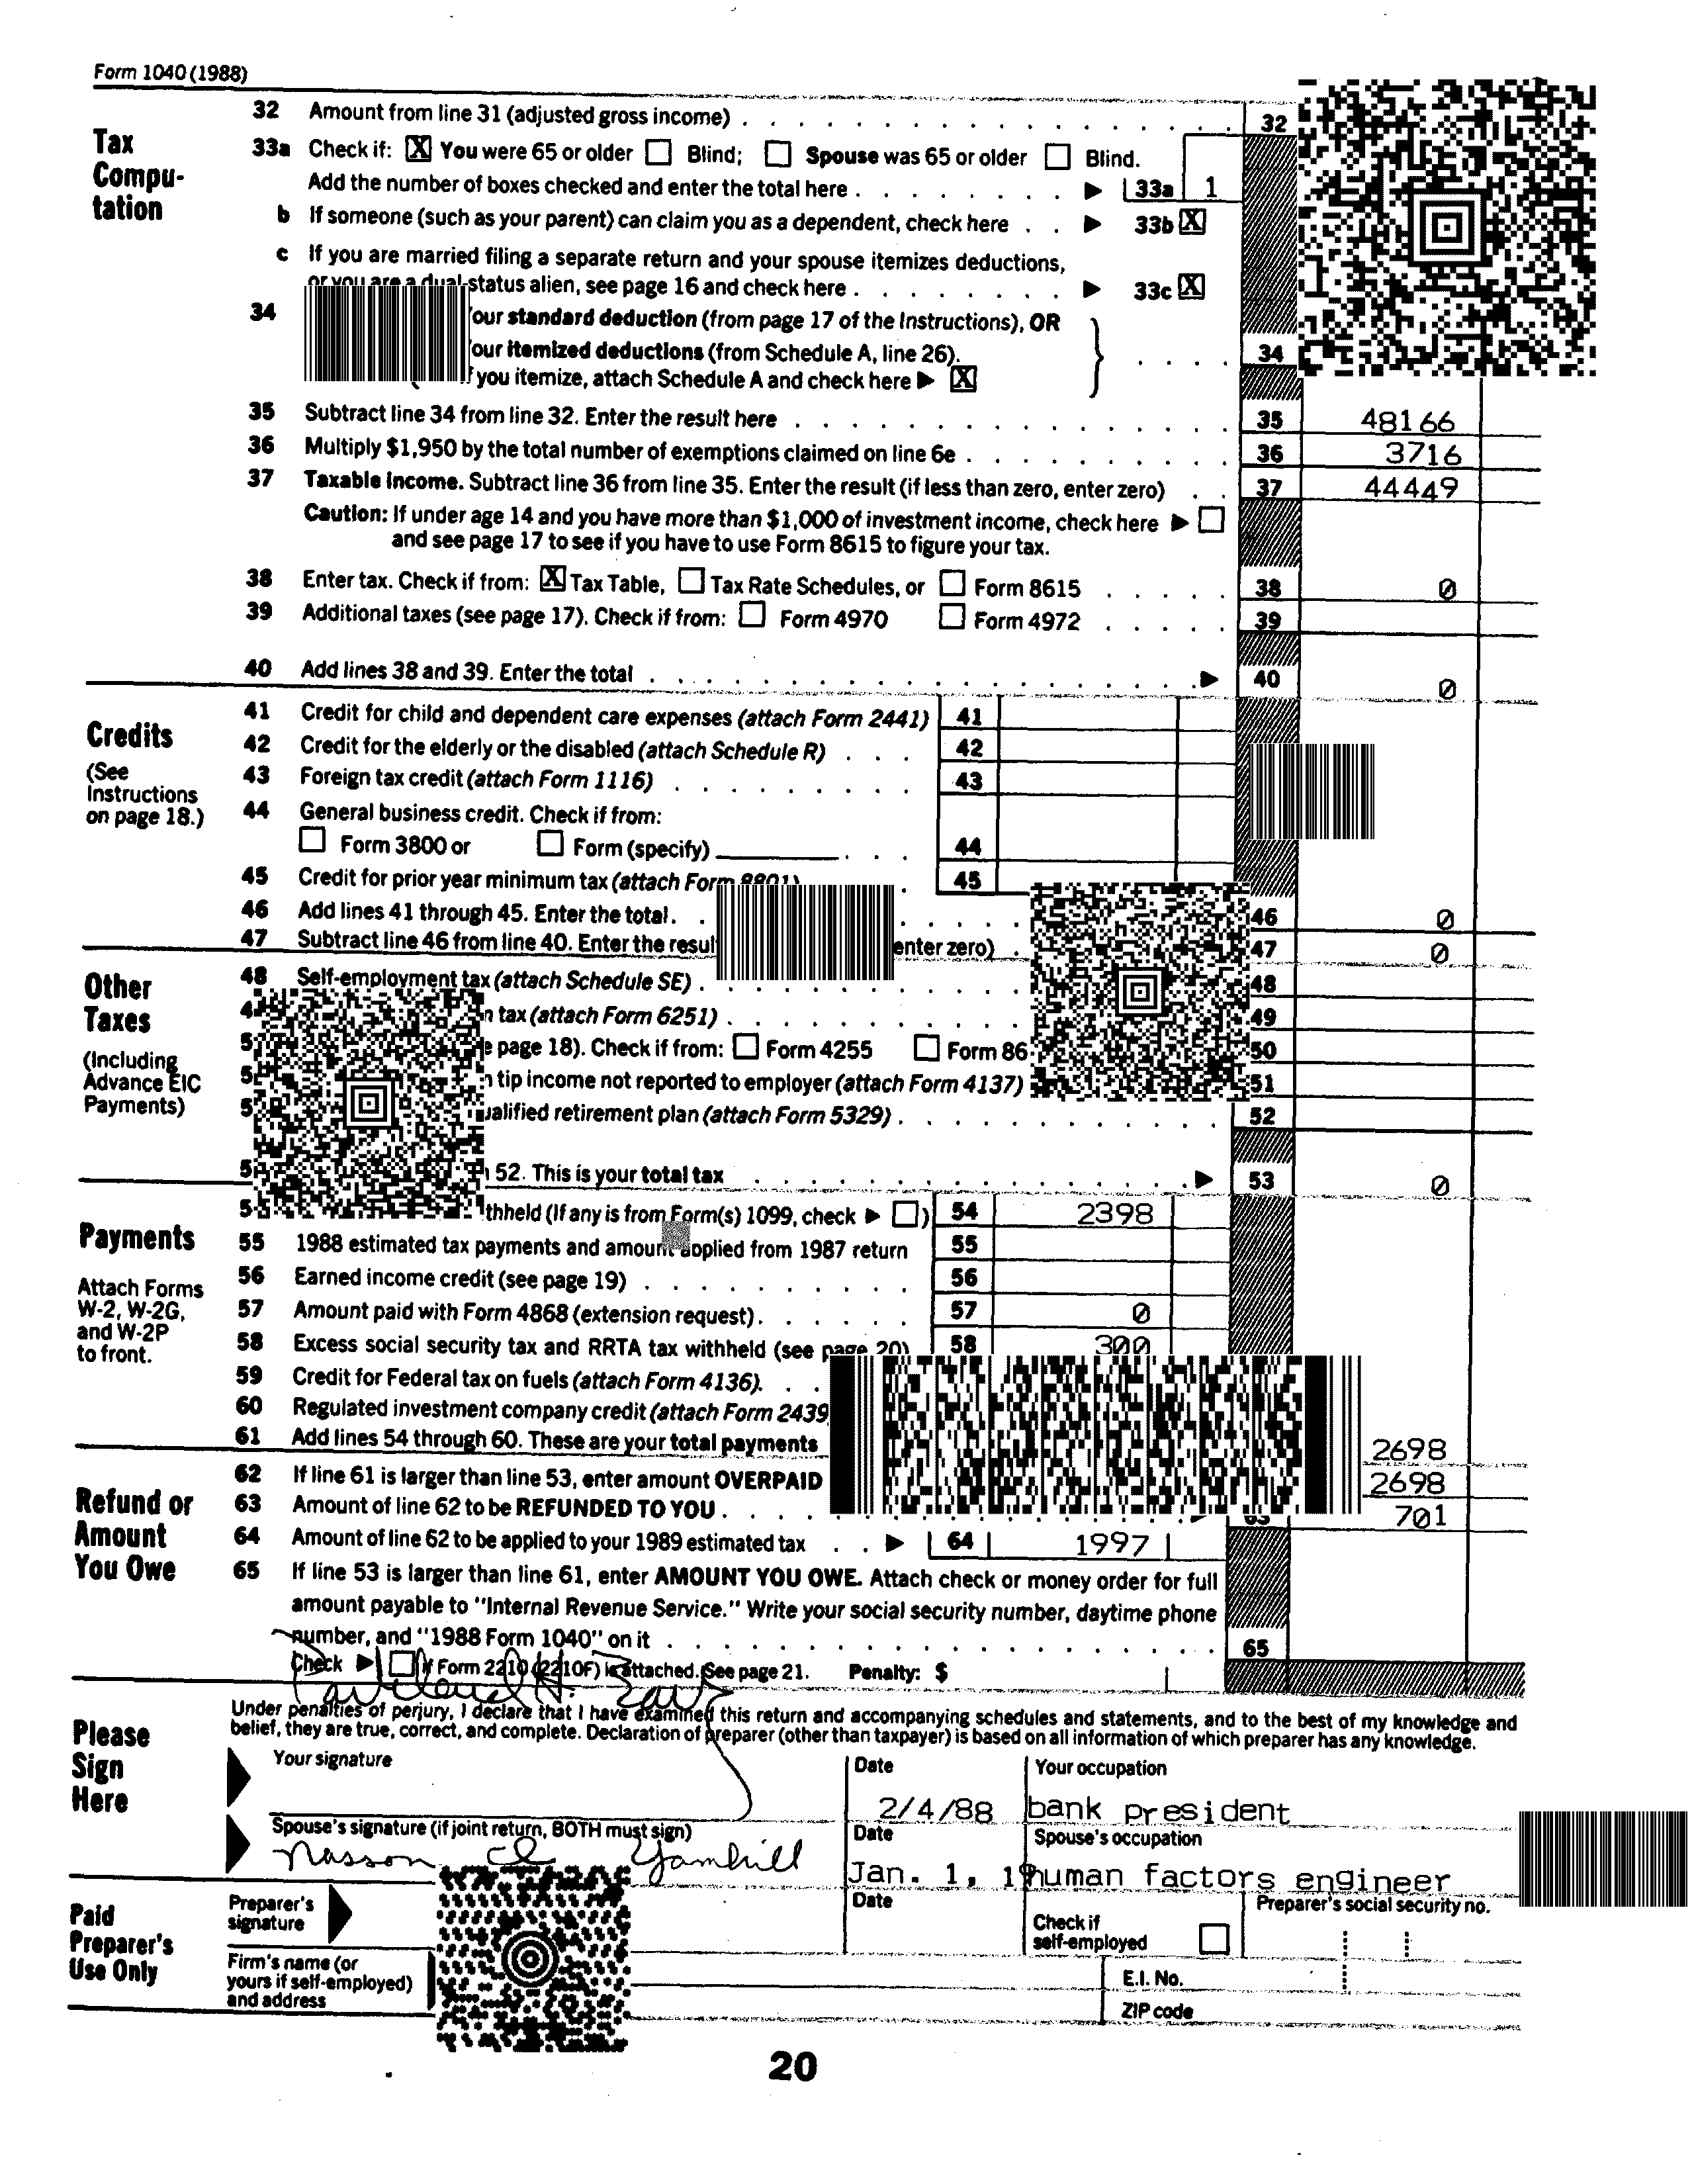 Form 1040 (1988)
Tax Compu-tation
32 Amount from line 31 (adjusted gross income) 32
33a Check if: X You were 65 or older Blind; Spouse was 65 or older Blind.
Add the number of boxes checked and enter the total here ▶ 33a 1
b If someone (such as your parent) can claim you as a dependent, check here ▶ 33b X
c If you are married filing a separate return and your spouse itemizes deductions,
or you are a dual-status alien, see page 16 and check here ▶ 33c X
34 standard deduction (from page 17 of the Instructions), OR
itemized deductions (from Schedule A, line 26). 34
you itemize, attach Schedule A and check here ▶ X
35 Subtract line 34 from line 32. Enter the result here 35 48166
36 Multiply $1,950 by the total number of exemptions claimed on line 6e 36 3716
37 Taxable income. Subtract line 36 from line 35. Enter the result (if less than zero, enter zero) 37 44449
Caution: If under age 14 and you have more than $1,000 of investment income, check here ▶
and see page 17 to see if you have to use Form 8615 to figure your tax.
38 Enter tax. Check if from: X Tax Table, Tax Rate Schedules, or Form 8615 38 0
39 Additional taxes (see page 17). Check if from: Form 4970 Form 4972 39
40 Add lines 38 and 39. Enter the total ▶ 40 0
Credits
(See Instructions on page 18.)
41 Credit for child and dependent care expenses (attach Form 2441) 41
42 Credit for the elderly or the disabled (attach Schedule R) 42
43 Foreign tax credit (attach Form 1116) 43
44 General business credit. Check if from:
Form 3800 or Form (specify) 44
45 Credit for prior year minimum tax (attach Form 8801) 45
46 Add lines 41 through 45. Enter the total. 46 0
47 Subtract line 46 from line 40. Enter the enter zero) 47 0
Other Taxes
(Including Advance EIC Payments)
48 Self-employment tax (attach Schedule SE) 48
tax (attach Form 6251) 49
page 18). Check if from: Form 4255 Form 50
tip income not reported to employer (attach Form 4137) 51
retirement plan (attach Form 5329) 52
52. This is your total tax ▶ 53 0
Payments
Attach Forms W-2, W-2G, and W-2P to front.
(If any is from Form(s) 1099, check ▶ ) 54 2398
55 1988 estimated tax payments and amount applied from 1987 return 55
56 Earned income credit (see page 19) 56
57 Amount paid with Form 4868 (extension request) 57 0
58 Excess social security tax and RRTA tax withheld (see page 20) 58 300
59 Credit for Federal tax on fuels (attach Form 4136)
60 Regulated investment company credit (attach Form 2439
61 Add lines 54 through 60. These are your total payments 2698
Refund or Amount You Owe
62 If line 61 is larger than line 53, enter amount OVERPAID 2698
63 Amount of line 62 to be REFUNDED TO YOU 63 701
64 Amount of line 62 to be applied to your 1989 estimated tax ▶ 64 1997
65 If line 53 is larger than line 61, enter AMOUNT YOU OWE. Attach check or money order for full
amount payable to "Internal Revenue Service." Write your social security number, daytime phone
number, and "1988 Form 1040" on it 65
Check ▶ if Form 2210 (2210F) is attached. See page 21. Penalty: $
Please Sign Here
Under penalties of perjury, I declare that I have examined this return and accompanying schedules and statements, and to the best of my knowledge and
belief, they are true, correct, and complete. Declaration of preparer (other than taxpayer) is based on all information of which preparer has any knowledge.
Your signature Date 2/4/88 Your occupation bank president
Spouse's signature (if joint return, BOTH must sign) Date Jan. 1, Spouse's occupation human factors engineer
Yamhill
Paid Preparer's Use Only
Preparer's signature Date Check if self-employed Preparer's social security no.
Firm's name (or yours if self-employed) and address E.I. No.
ZIP code
20